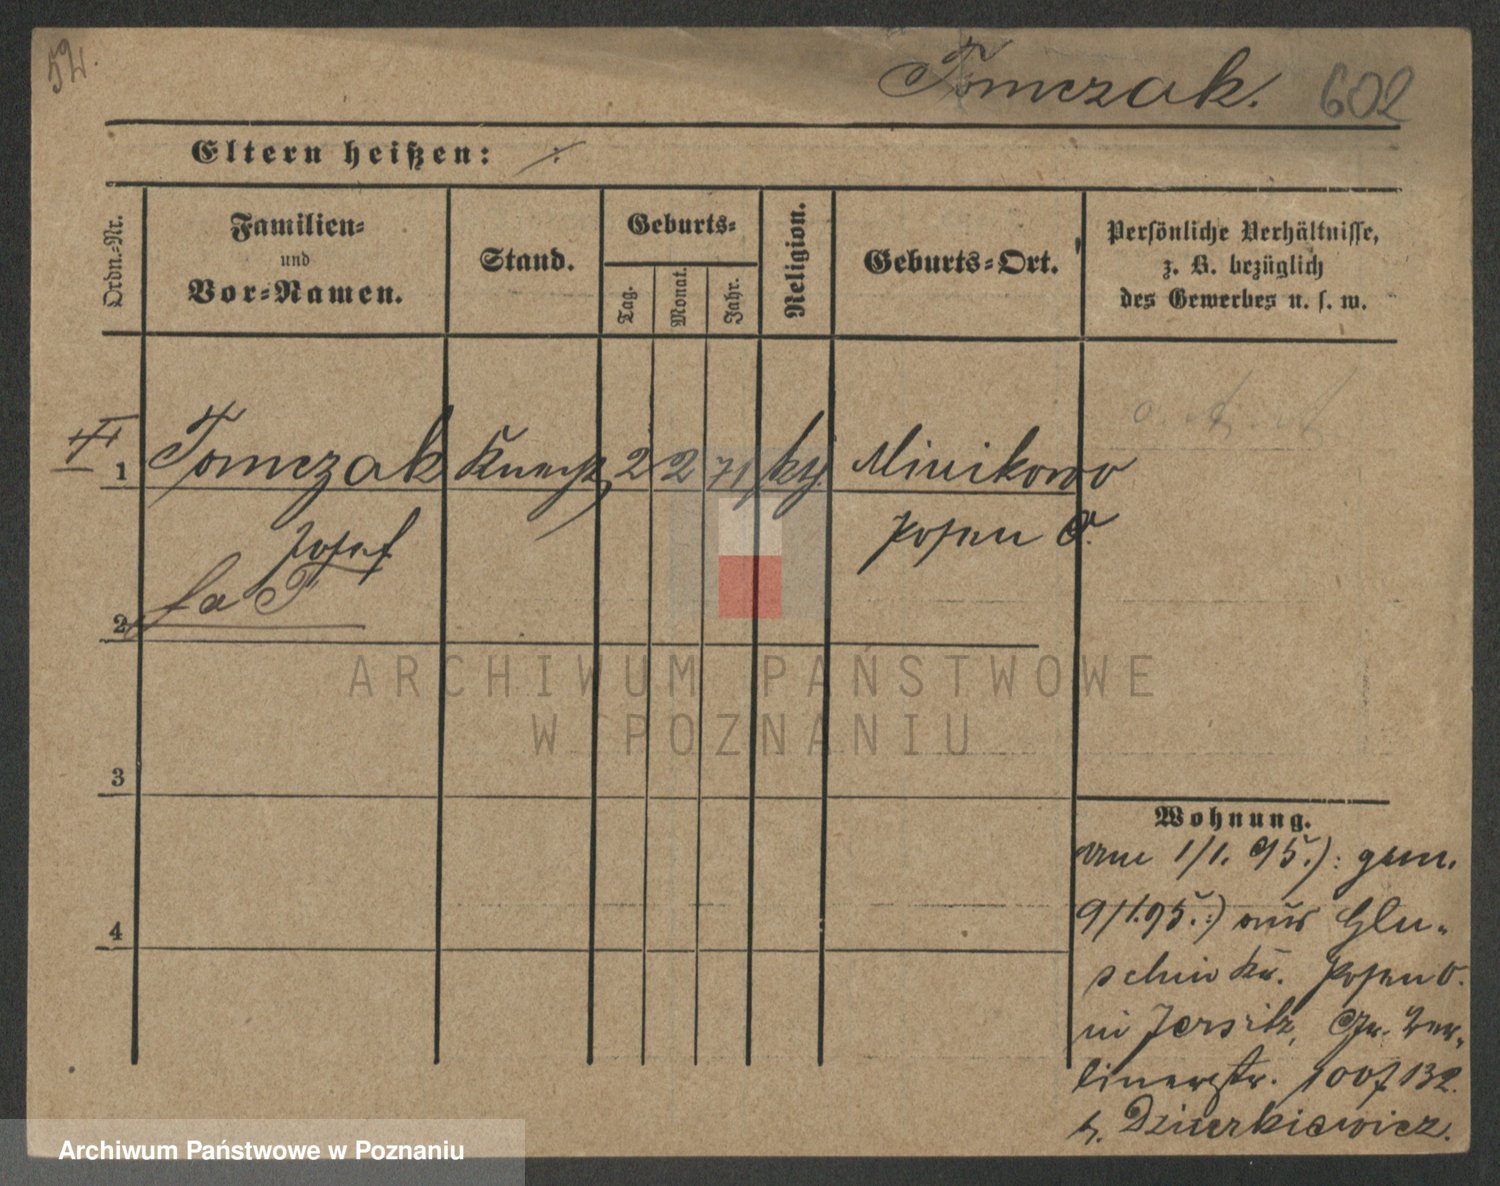 52.
Tomczak. 602
Eltern heißen:
Ordn.-Nr.
Familien-
und
Vor-Namen.
Stand.
Geburts-
Tag.
Monat.
Jahr.
Religion.
Geburts-Ort.
Persönliche Verhältnisse,
z. B. bezüglich
des Gewerbes u. s. w.
1 Tomczak Knecht 2 2 71 kth. Minikowo
Josef Posen O.
2
3
4
ARCHIWUM PAŃSTWOWE
W POZNANIU
Wohnung.
am 1/1. 95.): gem.
9/1.95.:) aus Glu-
schin Kr. Posen O.
in Jersitz, Gr. Ber-
linerstr. 100/132.
b. Dzierkiewicz.
Archiwum Państwowe w Poznaniu